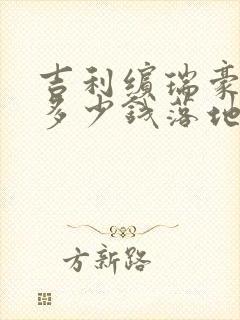 吉利缤瑞豪
多少钱落地
方新路